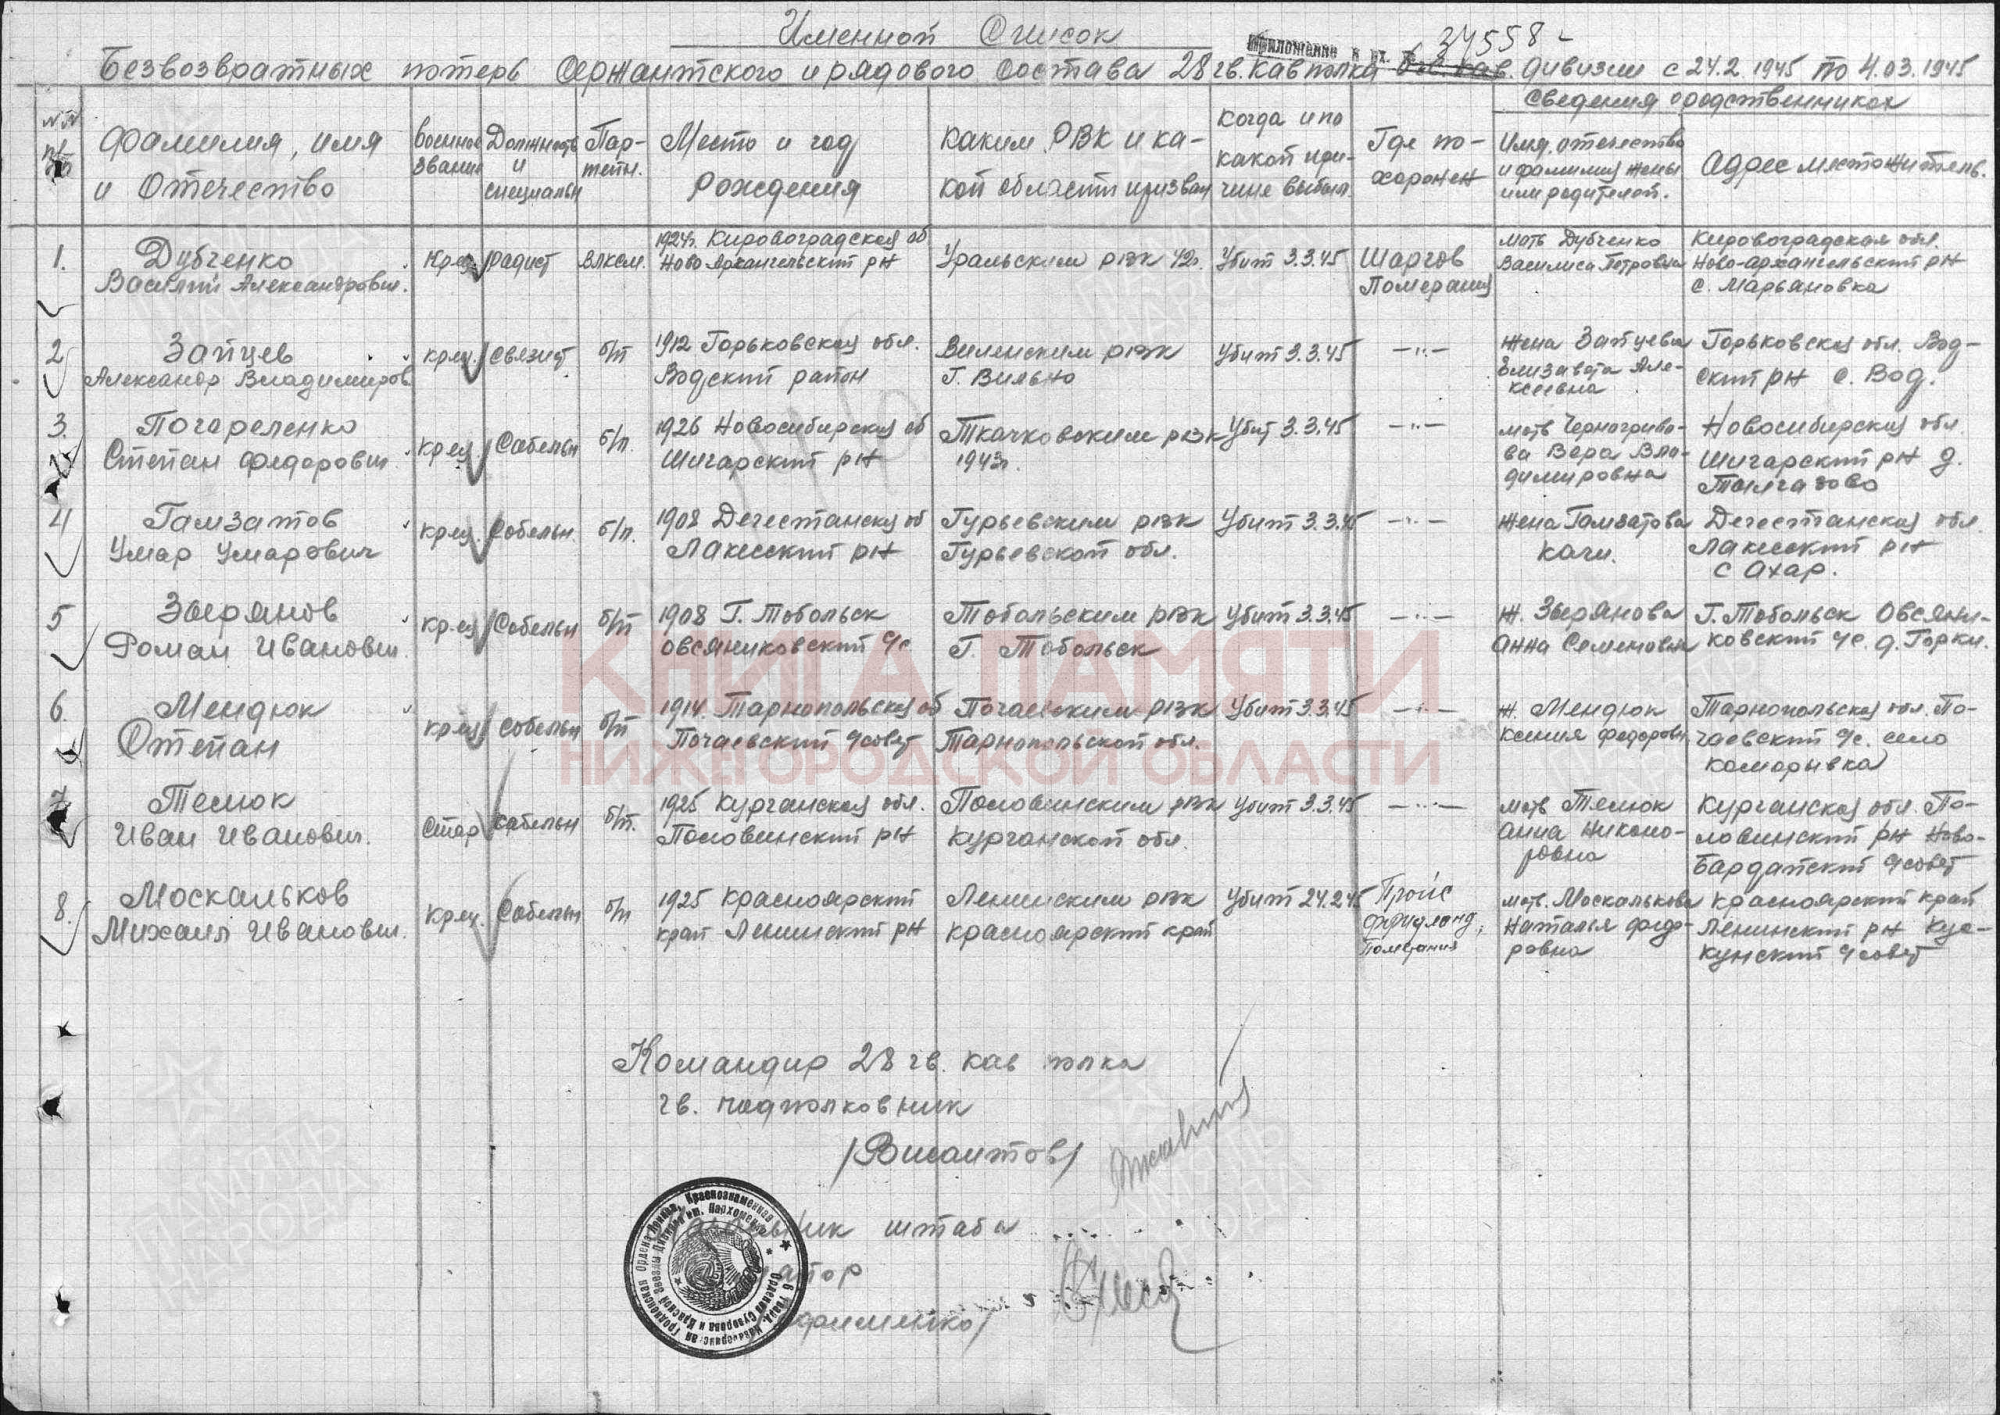 Именной Список
Приложение к вх. 37558-
Безвозвратных потерь сержантского и рядового состава 28 гв. кав полка кав. дивизии с 24.2.1945 по 4.03.1945
Сведения о родственниках
№№ п/п
Фамилия, имя и Отчество
Военное звание
Должность и специальн
Пар- тейн.
Место и год рождения
Каким РВК и ка- кой области призван
Когда и по какой при- чине выбыл.
Где по- хоронен
Имя, отечество и фамилия жены или родителей.
Адрес местожитель.
1. Дубченко Василий Александрович.
Кр-ец радист ВЛКСМ.
1924г. Кировоградская об Ново Архангельский рн
Уральским рвк 42г.
Убит 3.3.45
Шаргов Померания
мать Дубченко Василиса Петровна
Кировоградская обл. Ново-архангельский рн с. Марьяновка
2 Зайцев Александр Владимиров.
крец связист б/п
1912 Горьковская обл. Водский район
Виленским рвк г. Вильно
Убит 3.3.45
—"—
жена Зайцева Елизавета Але- ксеевна
Горьковская обл. Вод- ский рн с. Вод.
3. Почареленко Степан Федорович.
крец. Сабельн б/п.
1926 Новосибирская об Шигарский рн
Ткачковским рвк 1943г.
Убит 3.3.45
—"—
мать Черногриво- ва Вера Вла- димировна
Новосибирская обл. Шигарский рн д.
4 Гамзатов Умар Умарович
крец. Сабельн. б/п.
1908 Дегестанская об Лакский рн
Гурьевским рвк Гурьевской обл.
Убит 3.3.45
—"—
жена Гамзатова Качи.
Дегестанская обл. Лакский рн с Ахар.
5 Зырянов Роман Иванович.
крец Сабельн б/п
1908 г. Тобольск Овсяниковский с/с
Тобольским рвк г. Тобольск
Убит 3.3.45
—"—
ж. Зырянова Анна Семеновна
г. Тобольск Овсяни- ковский с/с. д. Горки.
6. Мендюк Степан
крец Сабельн б/п
1914. Тарнопольская об Почаевский с/совет
Почаевским рвк Тарнопольской обл.
Убит 3.3.45
—"—
ж. Мендюк Ксения Федоровн
Тарнопольская обл. По- чаевский с/с. село Комарывка
7. Телюк Иван Иванович.
Стар Сабельн б/п.
1925 Курганская обл. Половинский рн
Половинским рвк Курганской обл.
Убит 3.3.45
—"—
мать Телюк Анна Никоно- ровна
Курганская обл. По- ловинский рн Ново- Бардатский с/совет
8. Москальков Михаил Иванович.
крец. Сабельн б/п
1925 Красноярский край Ленинский рн
Ленинским рвк Красноярский край
Убит 24.2.45
Пройс Фридланд, Померания
мать. Москалькова Наталья Федо- ровна
Красноярский край Ленинский рн Кус- кунский с/совет
Командир 28 гв. кав полка
гв. подполковник
/Висаитов/
Начальник штаба
майор
КНИГА ПАМЯТИ
НИЖЕГОРОДСКОЙ ОБЛАСТИ
ПАМЯТЬ НАРОДА